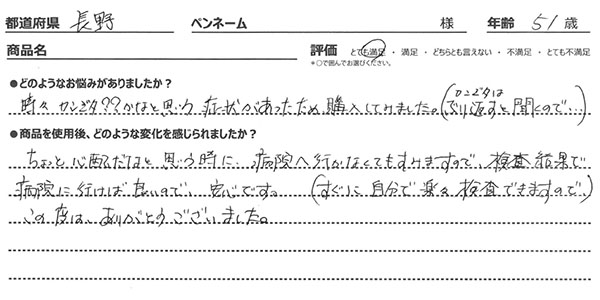 都道府県 長野 ペンネーム 様 年齢 51 歳
商品名 評価 とても満足 ・ 満足 ・ どちらとも言えない ・ 不満足 ・ とても不満足
*○で囲んでお選びください。
●どのようなお悩みがありましたか？
カンジタは
時々カンジタ??かなと思う症状があったため購入してみました。(ぶり返すと聞くので…)
●商品を使用後、どのような変化を感じられましたか？
ちょっと心配だなと思う時に、病院へ行かなくてもすみますので、検査結果で
病院に行けば良いので、安心です。(すぐに自分で楽々検査できますので)
この度は、ありがとうございました。